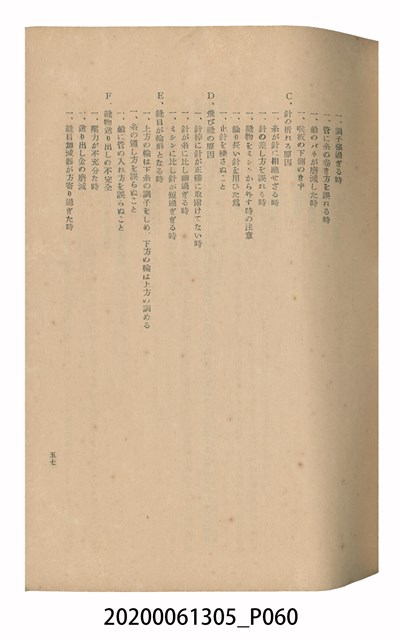 一、調子強過ぎる時
一、管に糸の巻き方を誤れる時
一、船のバネが磨滅した時
一、咲板の下側のきず
C、針の折れる原因
一、糸が針に相應せざる時
一、針の差し方を誤れる時
一、縫物をミシンから外す時の注意
一、餘り長い針を用ひた爲
一、止針を極さぬこと
D、飛び縫の原因
一、針棒に針が正確に取附けてない時
一、針が糸に比し細過ぎる時
一、ミシンに比し針が短過ぎる時
E、縫目が輪形となる時
一、上方の輪は下糸の調子をしめ、下方の輪は上方の調める
一、糸の通し方を誤らぬこと
一、船に管の入れ方を誤らぬこと
F、縫物送り出しの不完全
一、壓力が不充分な時
一、送り出し金の磨滅
一、縫目加減器が片寄り過ぎた時
五七
20200061305_P060